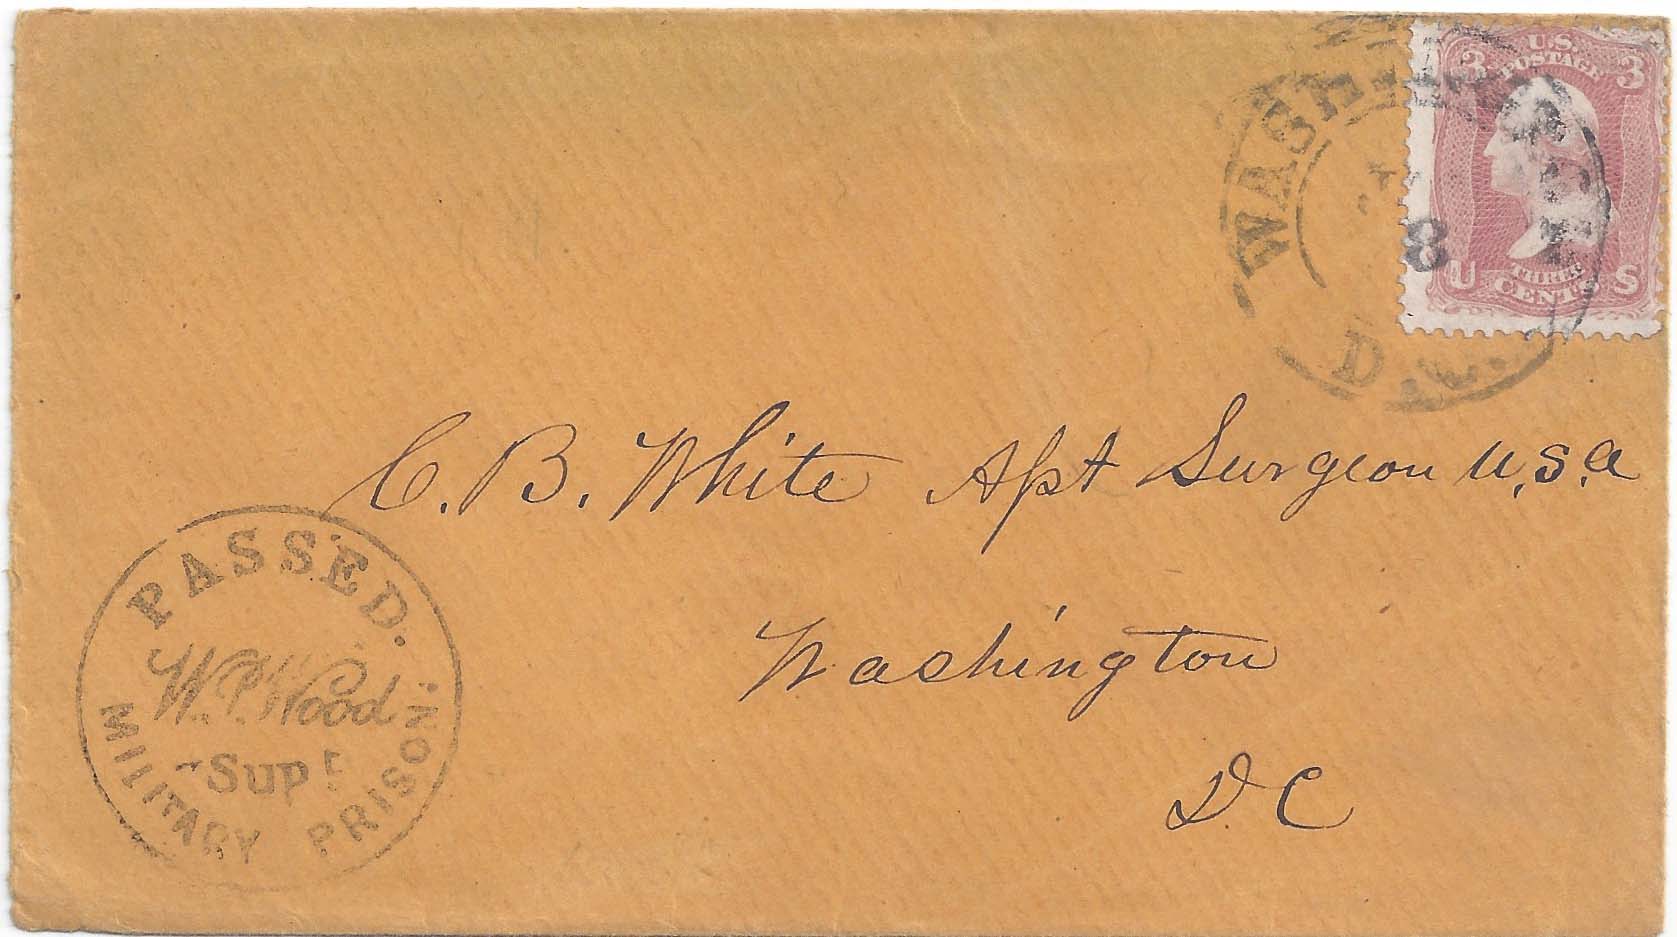 U.S. POSTAGE
3 3
U THREE CENTS S
WASHINGTON
8
D.C.
C. B. White Asst Surgeon U.S.A
Washington
D.C
PASSED.
W. P. Wood
Supt
MILITARY PRISON.